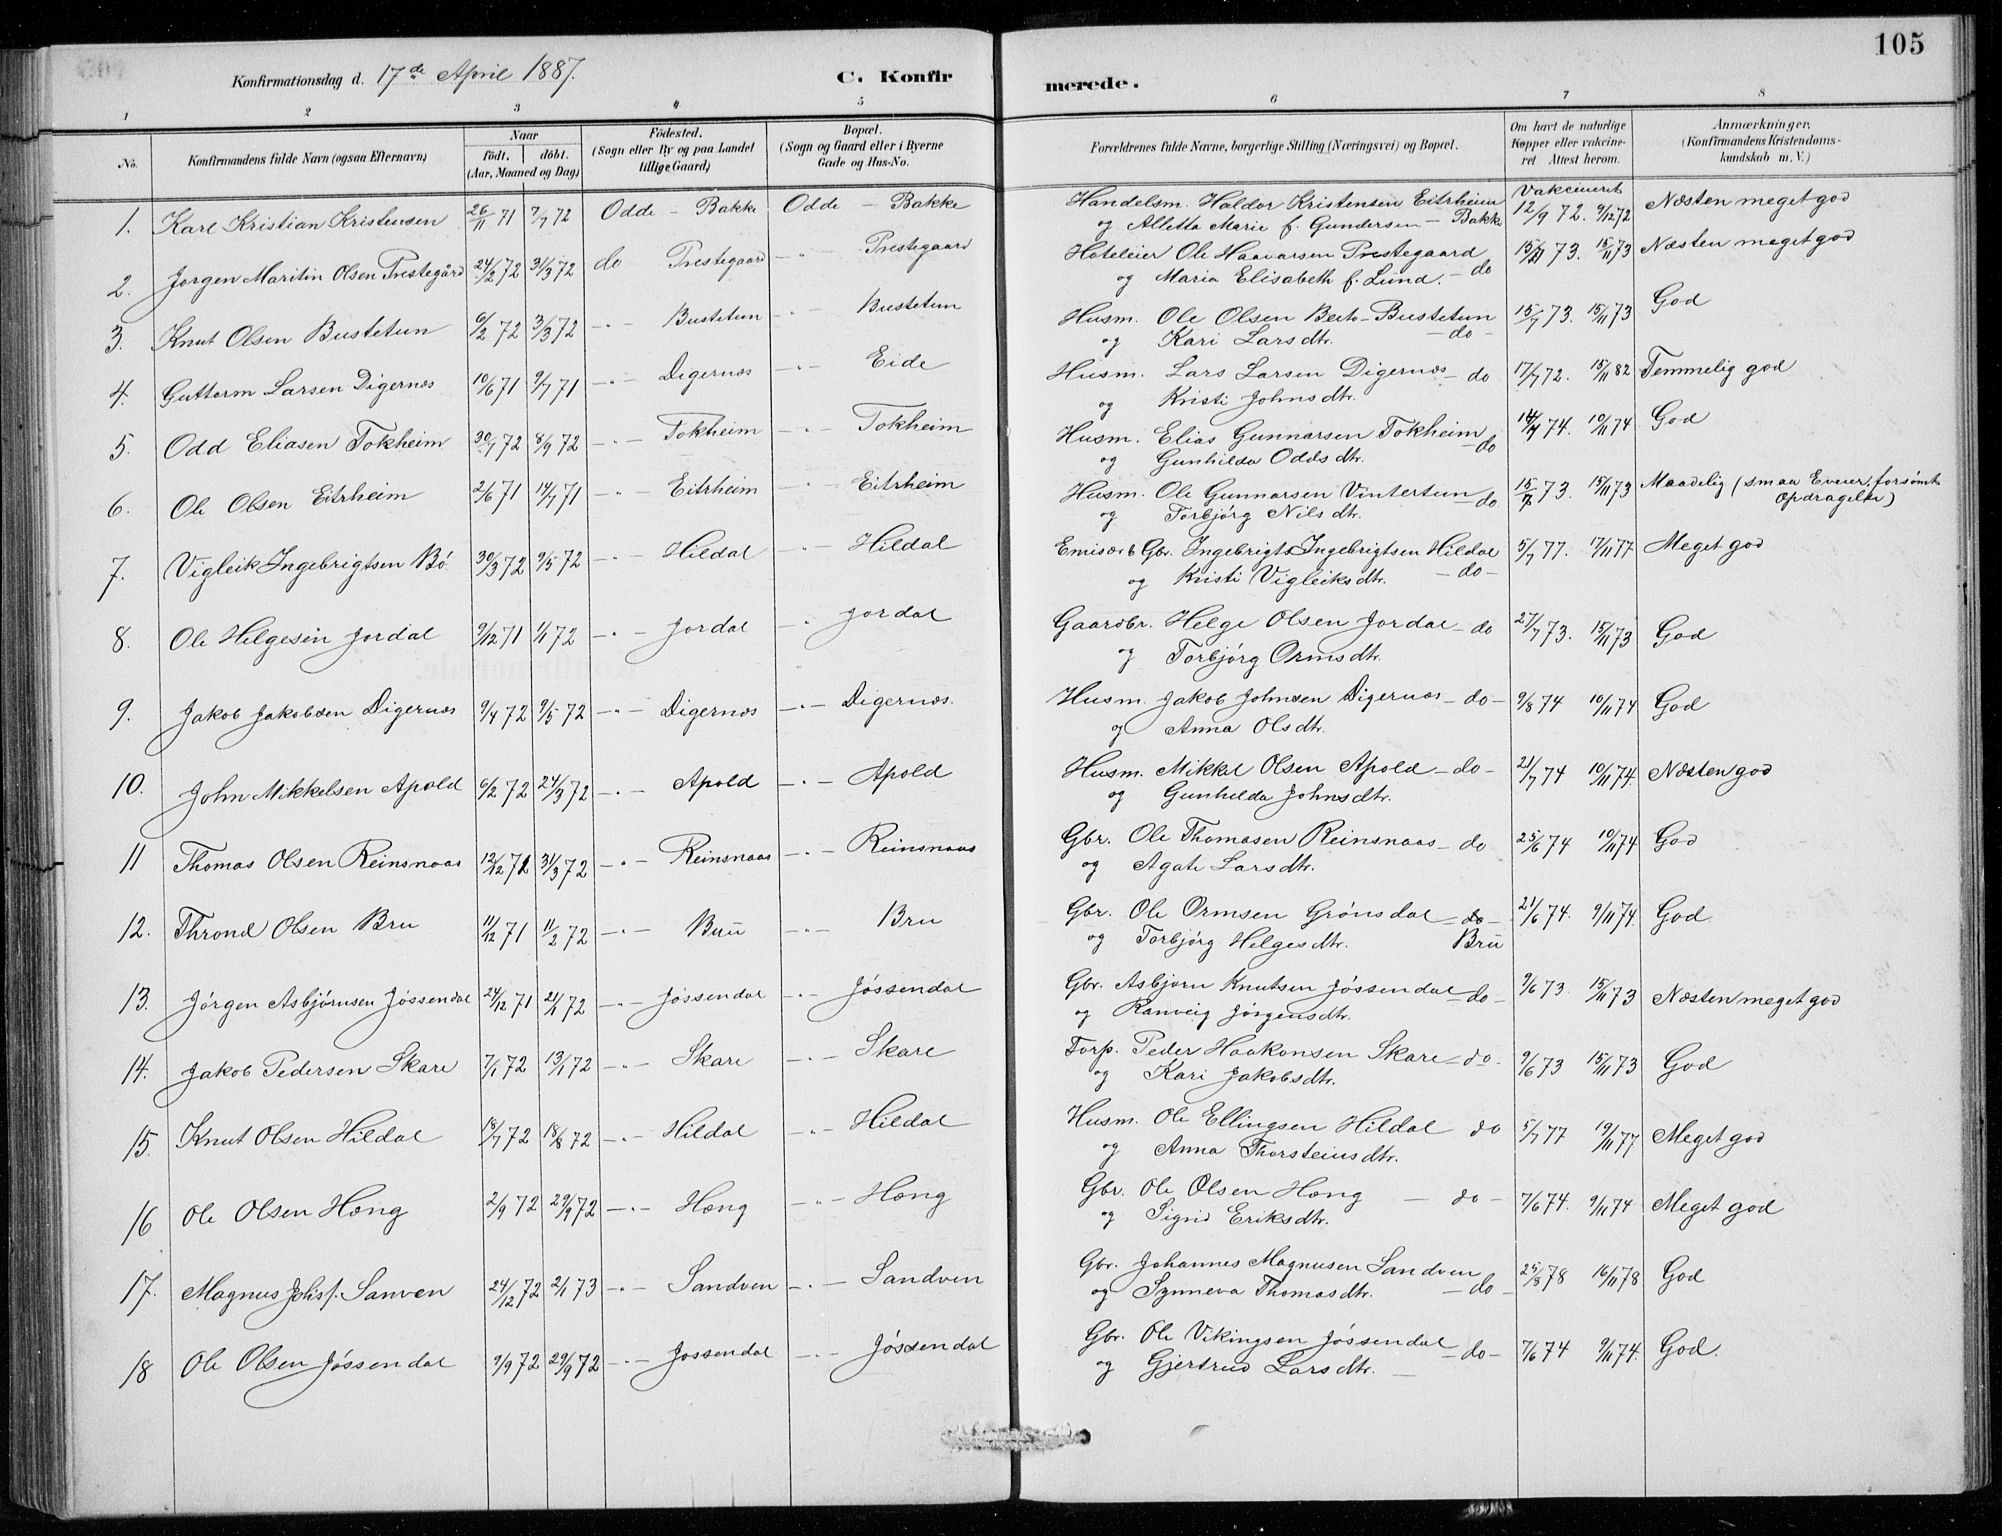 105
Konfirmationsdag d. 17de April 1887.
C. Konfir
merede.
1 2 3 4 5 6 7 8
No.
Konfirmandens fulde Navn (ogsaa Efternavn)
Naar
født. døbt.
(Aar, Maaned og Dag)
Fødested.
(Sogn eller By og paa Landet
tillige Gaard)
Bopæl.
(Sogn og Gaard eller i Byerne
Gade og Hus-No.
Forældrenes fulde Navne, borgerlige Stilling (Næringsvei) og Bopæl.
Om havt de naturlige
Kopper eller vakcine-
ret Attest herom.
Anmærkninger.
(Konfirmandens Kristendoms-
kundskab m. V.)
Vakcineret
1. Karl Kristian Kristensen 26/11 71 7/7 72 Odde - Bakke Odde - Bakke Handelsm. Haldor Kristensen Eitrheim 12/9 72. 9/12 72 Næsten meget god
og Alletta Marie f. Gundersen - Bakke
2. Jørgen Maritin Olsen Prestegård 24/2 72 31/3 72 do Prestegaard -"- Prestegaard Hoteleier Ole Haavarsen Prestegaard 73. 15/11 73 Næsten meget god
og Maria Elisabeth f. Lund. - do
3. Knut Olsen Bustetun 6/2 72 3/3 72 -"- Bustetun -"- Bustetun Husm. Ole Olsen Berto-Bustetun 15/7 73. 15/11 73 God
og Kari Larsdtr. - do -
4. Guttorm Larsen Digernæs 10/6 71 9/7 71 -"- Digernæs -"- Eide Husm. Lars Larsen Digernæs - do 17/7 72. 15/11 82 Temmelig god
og Kristi Johnsdtr.
5. Odd Eliasen Tokheim 30/7 72 8/9 72 -"- Tokheim -"- Tokheim Husm. Elias Gunnarsen Tokheim do 14/7 74. 10/11 74 God
og Gunhilda Oddsdtr.
6. Ole Olsen Eitrheim 2/6 71 14/7 71 -"- Eitrheim -"- Eitrheim Husm. Ole Gunnarsen Vintertun - do 73. 15/11 73 Maadelig (smaa Evner, forsømt
og Torbjørg Nilsdtr. Opdragelse)
7. Vigleik Ingebrigtsen Bø 30/3 72 9/5 72 -"- Hildal -"- Hildal Emisær & Gbr. Ingebrigt Ingebrigtsen Hildal 5/7 77. 17/11 77 Meget god
og Kristi Vigleiksdtr. - do -
8. Ole Helgesen Jordal 9/12 71 1/1 72 -"- Jordal -"- Jordal Gaardbr. Helge Olsen Jordal - do 27/7 73. 15/11 73 God
og Torbjørg Ormsdtr.
9. Jakob Jakobsen Digernæs 9/4 72 9/5 72 -"- Digernæs -"- Digernæs. Husm. Jakob Johnsen Digernæs - do - 9/8 74 10/11 74 God
og Anna Olsdtr.
10. John Mikkelsen Apold 6/2 72 24/3 72 -"- Apold -"- Apold Husm. Mikkel Olsen Apold - do - 21/7 74 10/11 74. Næsten god
og Gunhilda Johnsdtr.
11 Thomas Olsen Reinsnaas 12/12 72 31/3 72 -"- Reinsnaas -"- Reinsnaas Gbr. Ole Thomasen Reinsnaas - do 25/6 74 10/11 74 God
og Agate Larsdtr.
12. Thrond Olsen Bru 11/12 71 11/2 72 -"- Bru -"- Bru Gbr. Ole Ormsen Grønsdal - do - 21/6 74. 9/11 74. God
og Torbjørg Helgesdtr. Bru
13. Jørgen Asbjørnsen Jøssendal 24/12 71 21/1 72 -"- Jøssendal -"- Jøssendal Gbr. Asbjørn Knutsen Jøssendal - do - 9/6 73. 15/11 73 Næsten meget god
og Ranveig Jørgensdtr.
14. Jakob Pedersen Skare 7/1 72 13/1 72 -"- Skare -"- Skare Torp. Peder Haakonsen Skare - do - 9/6 73 15/11 73 God
og Kari Jakobsdtr.
15. Knut Olsen Hildal 18/7 72 18/8 72 -"- Hildal -"- Hildal Husm. Ole Ellingsen Hildal do 5/7 77 19/11 77 Meget god
og Anna Thorsteinsdtr.
16 Ole Olsen Hæng 2/9 72 29/9 72 -"- Hæng -"- Hæng Gbr. Ole Olsen Hæng - do - 7/6 74. 9/11 74 Meget god
og Sigrid Eriksdtr.
17. Magnus Johs. Sanven 24/12 72 2/1 73 -"- Sandven -"- Sandven Gbr. Johannes Magnusen Sandven 25/8 78 16/11 78 God
og Synneva Thomasdtr. - do -
18 Ole Olsen Jøssendal 9/9 72 29/9 72 -"- Jøssendal -"- Jøssendal Gbr. Ole Vikingsen Jøssendal - do - 7/6 74 9/11 74. God.
og Gjertrud Larsdtr. -